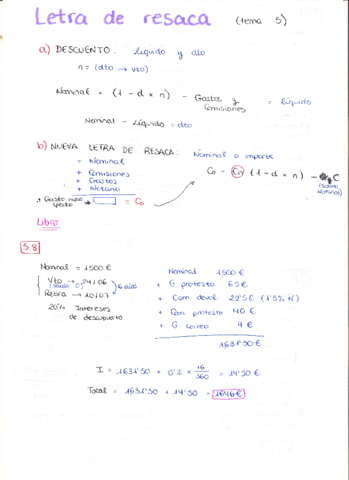 Letra de resaca (tema 5)
a) DESCUENTO: líquido y dto
n = (dto → vto)
Nominal × (1 - d × n) - Gastos y Comisiones = líquido
Nominal - Líquido = dto
b) NUEVA LETRA DE RESACA: Nominal o importe
= Nominal
+ Comisiones
+ Gastos
+ Notario
+ Gasto nuevo efecto → = Co
Co - Cn (1 - d × n) - C
(sobre nominal)
Libro
5.8
Nominal = 1500 €
Vto → 24/06
(saldo 0)
Resaca → 10/07
16 días
20% Intereses de descubierto
Nominal 1500 €
+ G protesto 65 €
+ Com. devol. 22'5 € (1'5% N)
+ Com protesto 40 €
+ G correo 4 €
1631'50 €
I = 1631'50 × 0'2 × 16/360 = 14'50 €
Total = 1631'50 + 14'50 = 1646 €